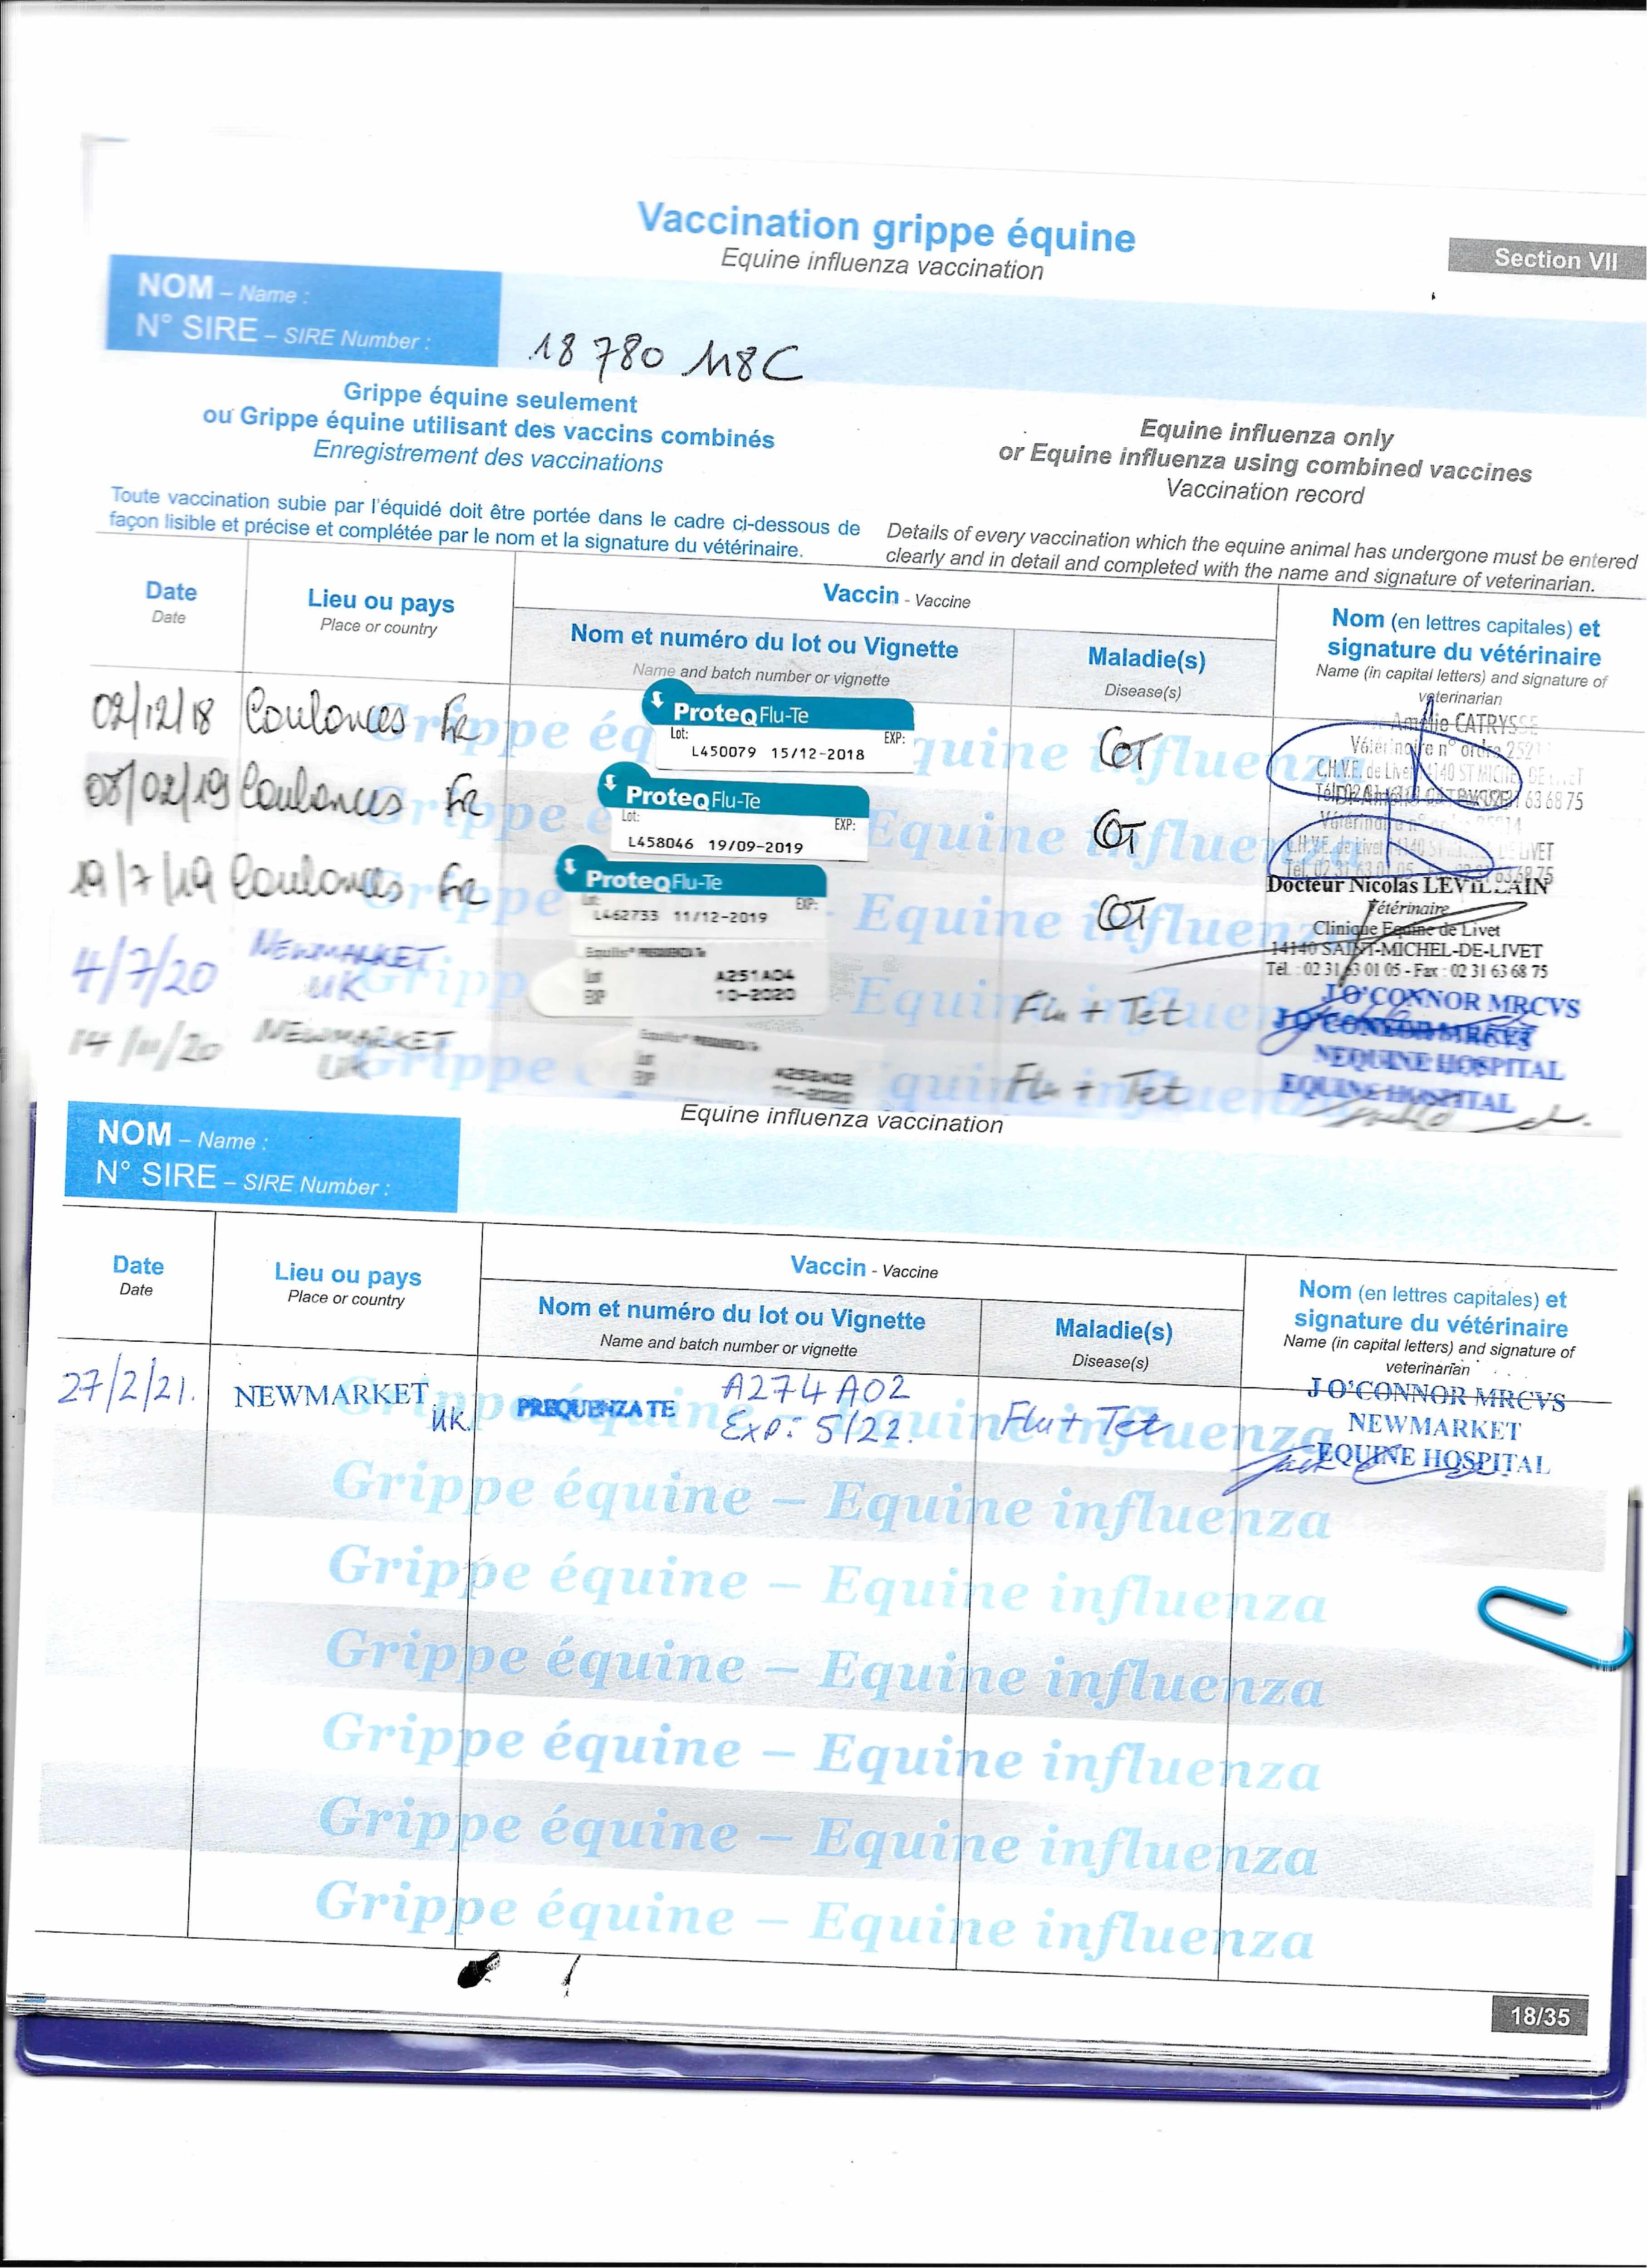 Vaccination grippe équine
Equine influenza vaccination
Section VII
NOM – Name :
N° SIRE – SIRE Number :
18 780 118C
Grippe équine seulement
ou Grippe équine utilisant des vaccins combinés
Enregistrement des vaccinations
Equine influenza only
or Equine influenza using combined vaccines
Vaccination record
Toute vaccination subie par l'équidé doit être portée dans le cadre ci-dessous de
façon lisible et précise et complétée par le nom et la signature du vétérinaire.
Details of every vaccination which the equine animal has undergone must be entered
clearly and in detail and completed with the name and signature of veterinarian.
Date
Date
Lieu ou pays
Place or country
Vaccin - Vaccine
Nom et numéro du lot ou Vignette
Name and batch number or vignette
Maladie(s)
Disease(s)
Nom (en lettres capitales) et
signature du vétérinaire
Name (in capital letters) and signature of
veterinarian
02/12/18 Coulonces FR
ProteqFlu-Te
Lot: EXP:
L450079 15/12-2018
GT
Amélie CATRYSSE
Vétérinaire n° ordre
C.H.V.E. de Livet 14140 ST MICHEL DE LIVET
08/02/19 Coulonces FR
ProteqFlu-Te
Lot: EXP:
L458046 19/09-2019
GT
19/7/19 Coulonces FR
ProteqFlu-Te
Lot: EXP:
L462733 11/12-2019
GT
Docteur Nicolas LEVILLAIN
Vétérinaire
Clinique Equine de Livet
14140 SAINT-MICHEL-DE-LIVET
Tél. : 02 31 63 01 05 - Fax : 02 31 63 68 75
4/7/20 NEWMARKET
UK
Equilis® PREQUENZA Te
Lot A251A04
EXP 10-2020
Flu + Tet
J O'CONNOR MRCVS
14/11/20 NEWMARKET
UK
Equilis® PREQUENZA Te
Lot A252A02
EXP 11-2020
Flu + Tet
EQUINE HOSPITAL
Equine influenza vaccination
NOM – Name :
N° SIRE – SIRE Number :
Date
Date
Lieu ou pays
Place or country
Vaccin - Vaccine
Nom et numéro du lot ou Vignette
Name and batch number or vignette
Maladie(s)
Disease(s)
Nom (en lettres capitales) et
signature du vétérinaire
Name (in capital letters) and signature of
veterinarian
27/2/21. NEWMARKET UK.
PREQUENZA TE A274A02
Exp: 5/22.
Flu + Tet
J O'CONNOR MRCVS
NEWMARKET
EQUINE HOSPITAL
Grippe équine – Equine influenza
Grippe équine – Equine influenza
Grippe équine – Equine influenza
Grippe équine – Equine influenza
Grippe équine – Equine influenza
Grippe équine – Equine influenza
18/35